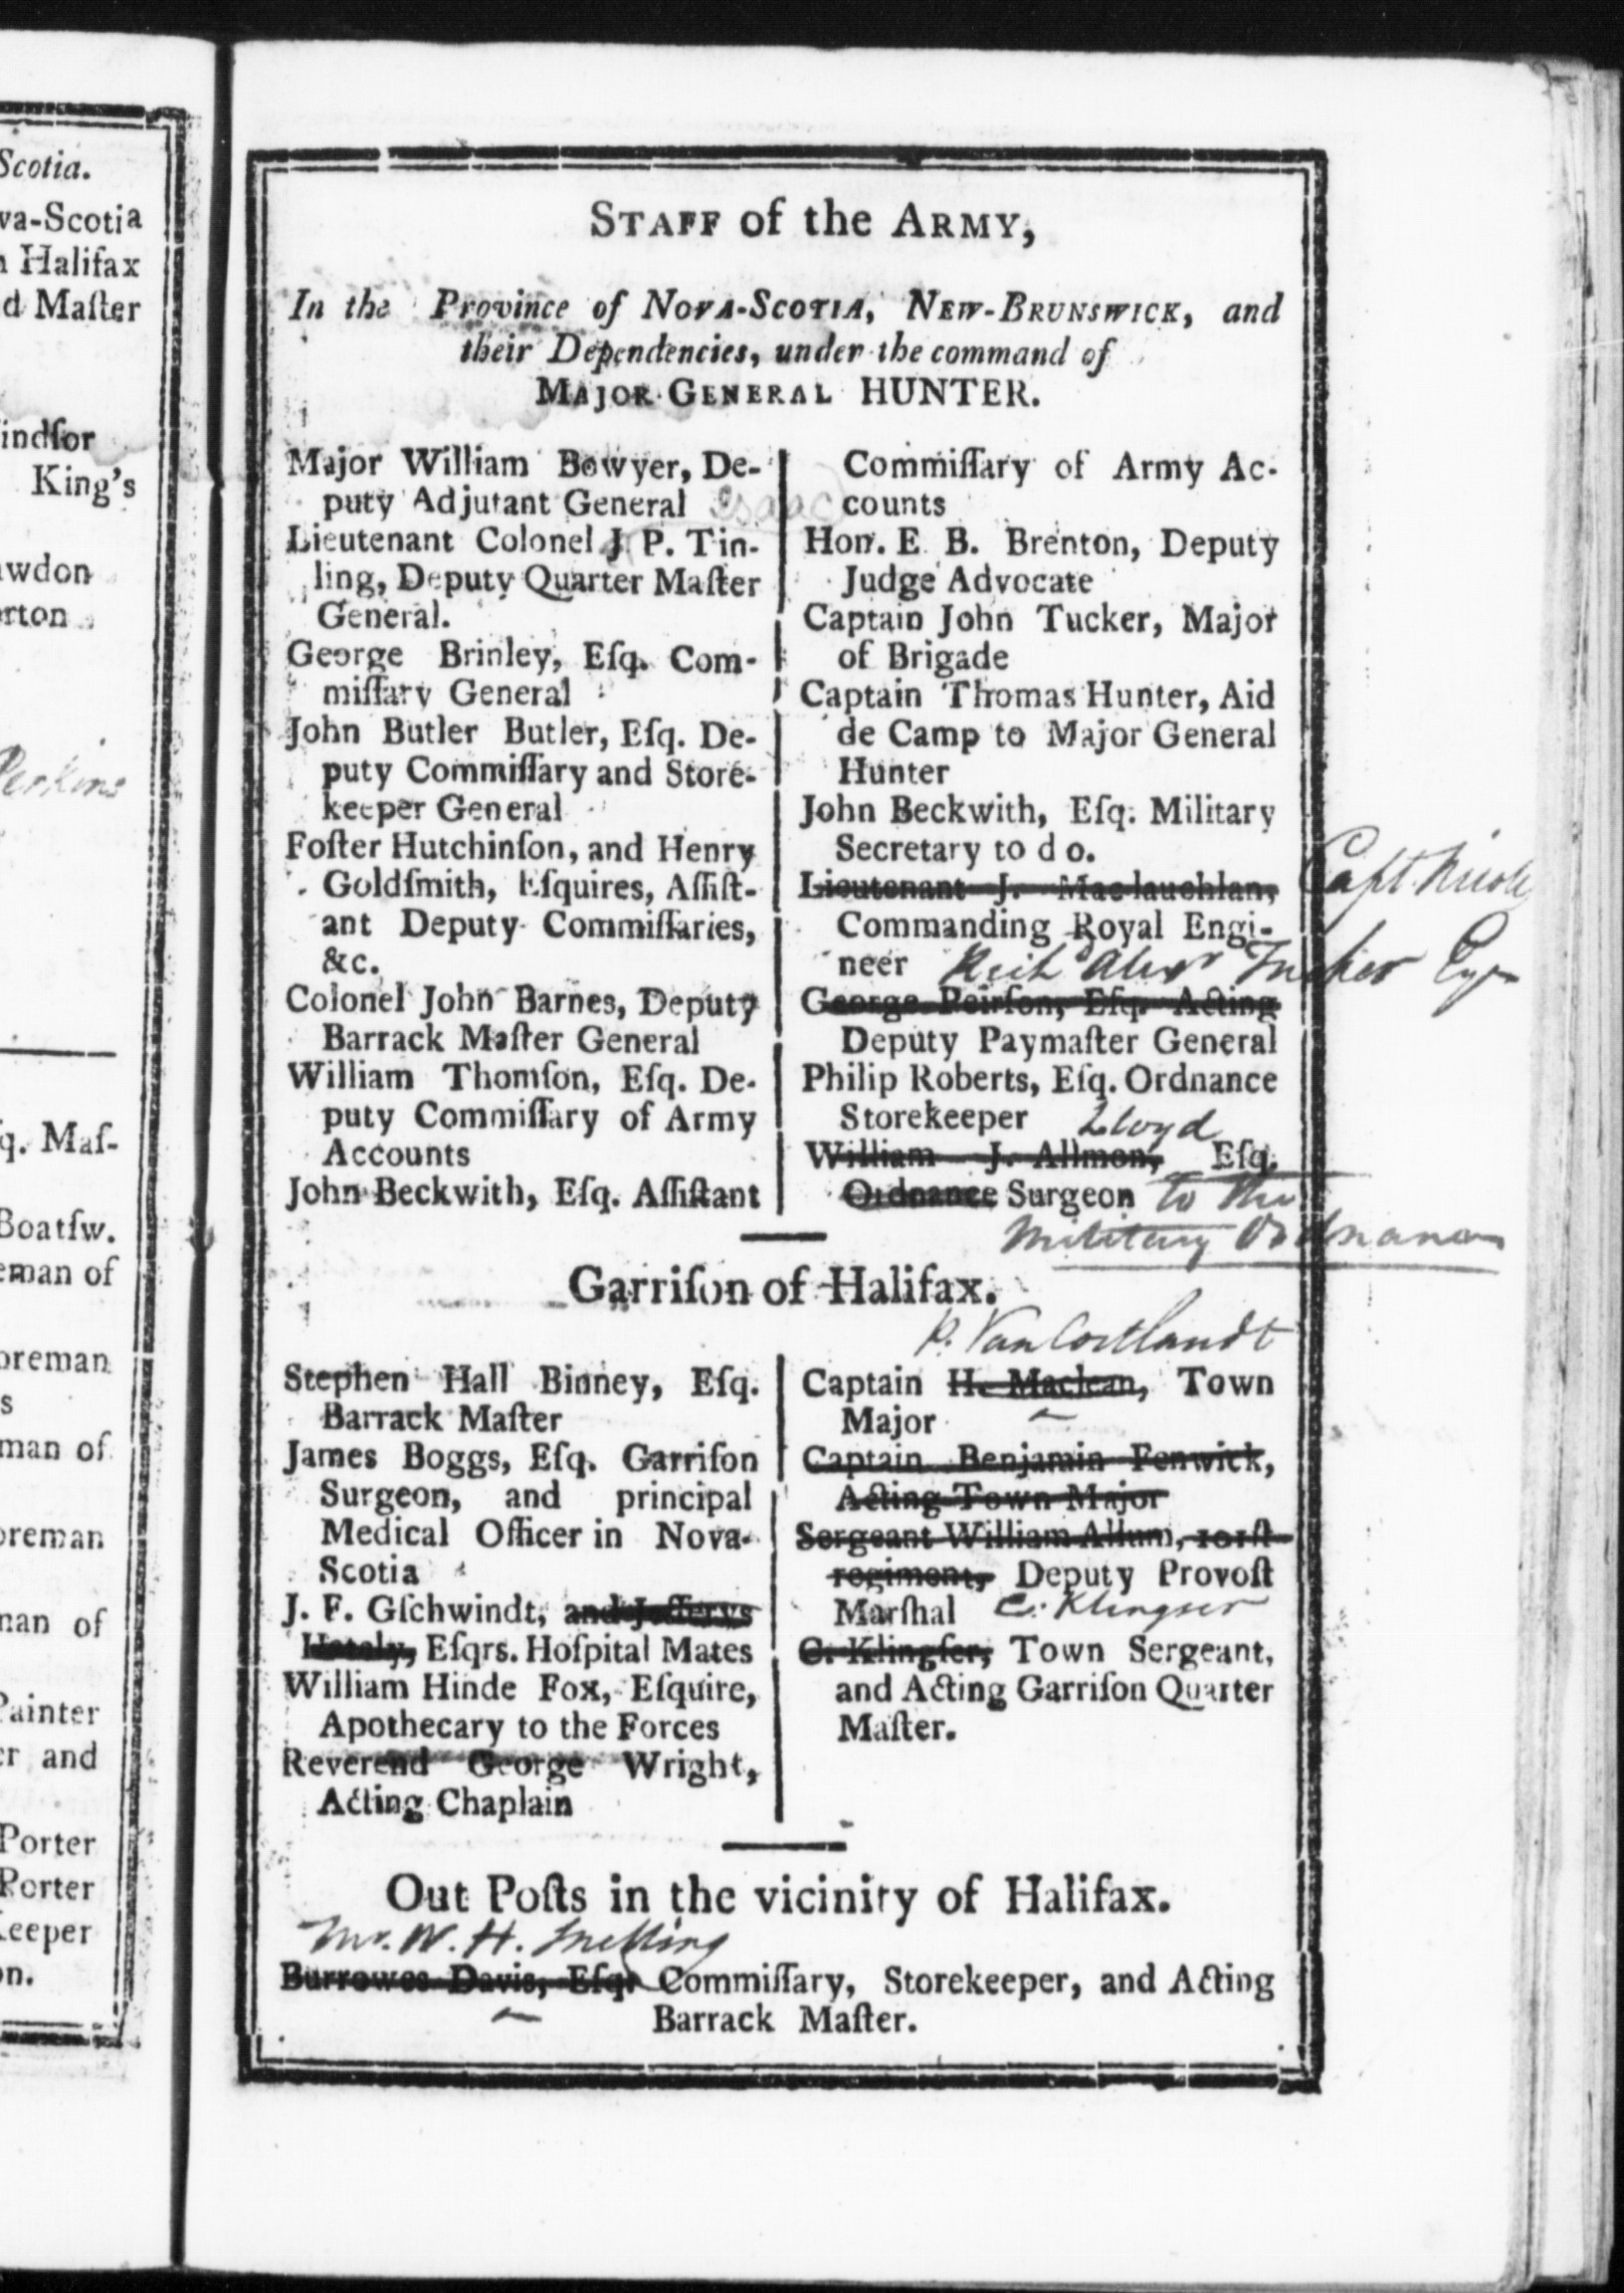 Scotia.
va-Scotia
Halifax
d Maſter
indſor
King's
wdon
rton
Perkins
q. Maſ-
Boatſw.
eman of
oreman
s
man of
oreman
nan of
Painter
er and
Porter
Porter
Keeper
on.
STAFF of the ARMY,
In the Province of NOVA-SCOTIA, NEW-BRUNSWICK, and
their Dependencies, under the command of
MAJOR GENERAL HUNTER.
Major William Bowyer, De-
puty Adjutant General Isaac
Lieutenant Colonel J P. Tin-
ling, Deputy Quarter Maſter
General.
George Brinley, Eſq. Com-
miſſary General
John Butler Butler, Eſq. De-
puty Commiſſary and Store-
keeper General
Foſter Hutchinſon, and Henry
Goldſmith, Eſquires, Aſſiſt-
ant Deputy Commiſſaries,
&c.
Colonel John Barnes, Deputy
Barrack Maſter General
William Thomſon, Eſq. De-
puty Commiſſary of Army
Accounts
John Beckwith, Eſq. Aſſiſtant
Commiſſary of Army Ac-
counts
Hon. E B. Brenton, Deputy
Judge Advocate
Captain John Tucker, Major
of Brigade
Captain Thomas Hunter, Aid
de Camp to Major General
Hunter
John Beckwith, Eſq. Military
Secretary to do.
Lieutenant J. Maclauchlan, Capt
Commanding Royal Engi-
neer Alexr Tucker
George Peirſon, Eſq. Acting
Deputy Paymaſter General
Philip Roberts, Eſq. Ordnance
Storekeeper Lloyd
William J. Allmon, Eſq.
Ordnance Surgeon to the
Military Ordnance
Garriſon of Halifax.
P. Van Cortlandt
Stephen Hall Binney, Eſq.
Barrack Maſter
James Boggs, Eſq. Garriſon
Surgeon, and principal
Medical Officer in Nova-
Scotia
J. F. Gſchwindt, and Jefferys
Hately, Eſqrs. Hoſpital Mates
William Hinde Fox, Eſquire,
Apothecary to the Forces
Reverend George Wright,
Acting Chaplain
Captain H. Maclean, Town
Major
Captain Benjamin Fenwick,
Acting Town Major
Sergeant William Allum, 101ſt
regiment, Deputy Provoſt
Marſhal C. Klingser
C. Klingſer, Town Sergeant,
and Acting Garriſon Quarter
Maſter.
Out Poſts in the vicinity of Halifax.
Mr. W. H. Snelling
Burrowes Davis, Eſqr Commiſſary, Storekeeper, and Acting
Barrack Maſter.